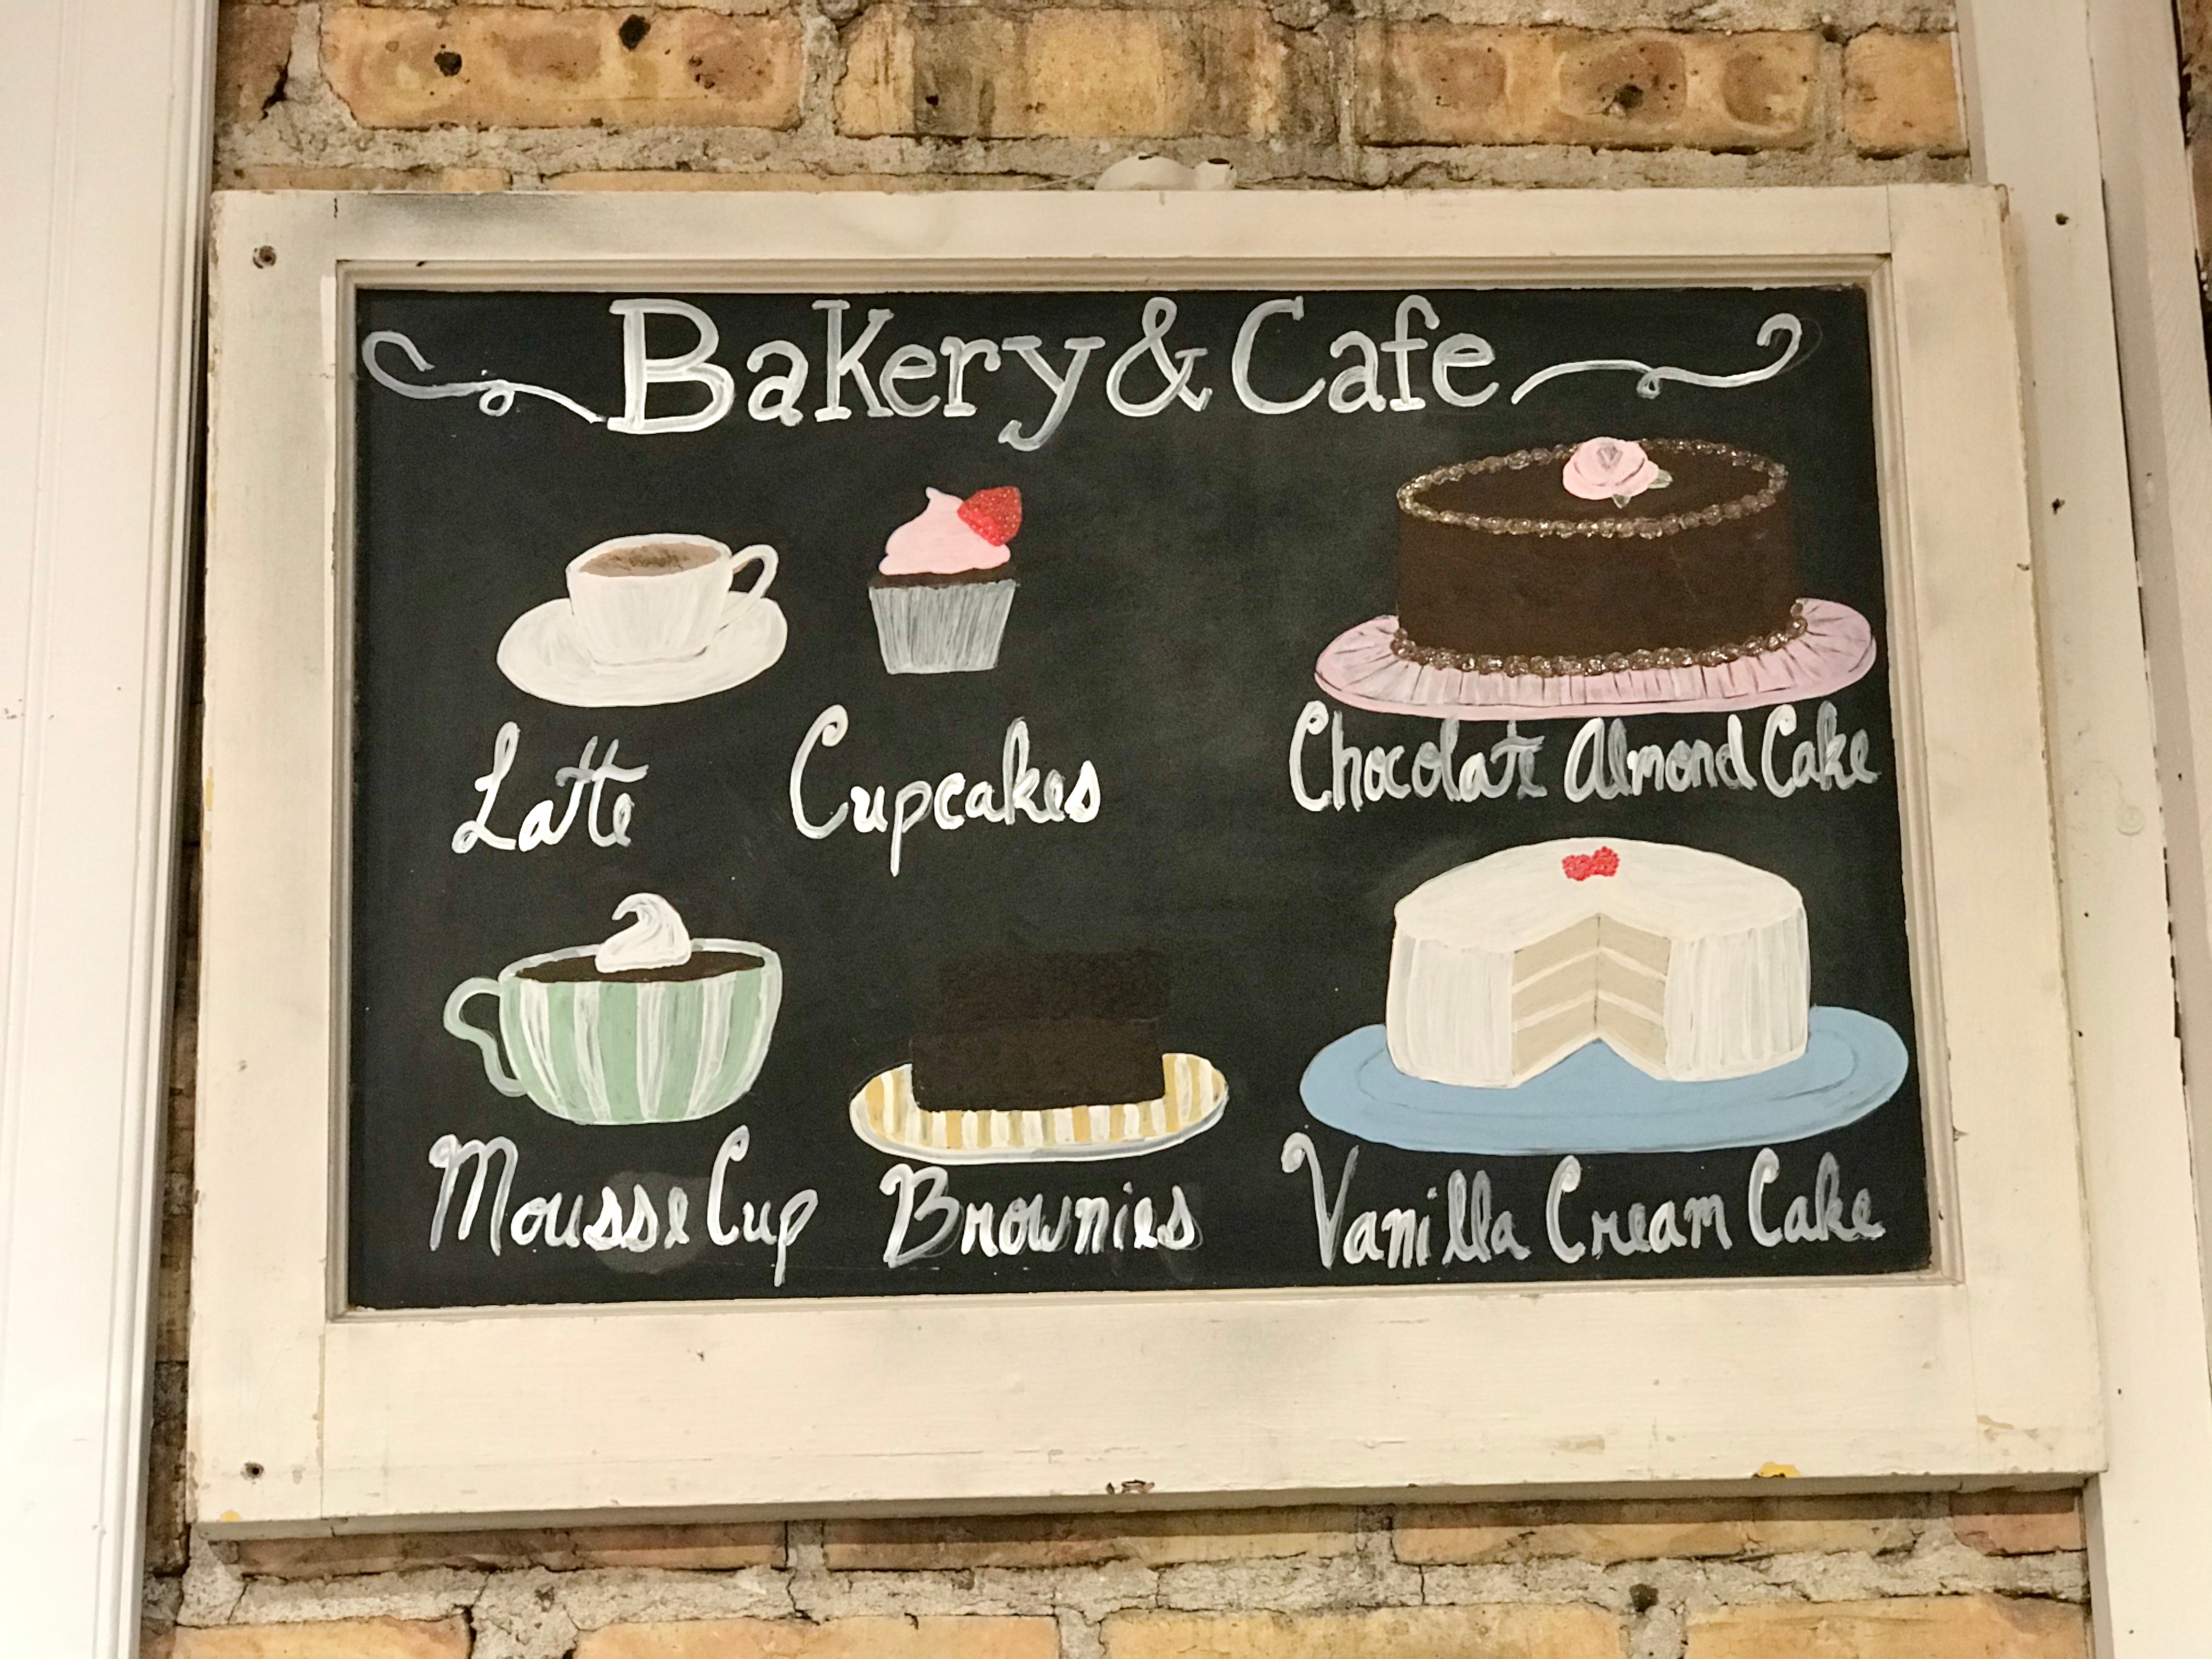 Bakery & Cafe
Latte
Cupcakes
Chocolate Almond Cake
Mousse Cup
Brownies
Vanilla Cream Cake